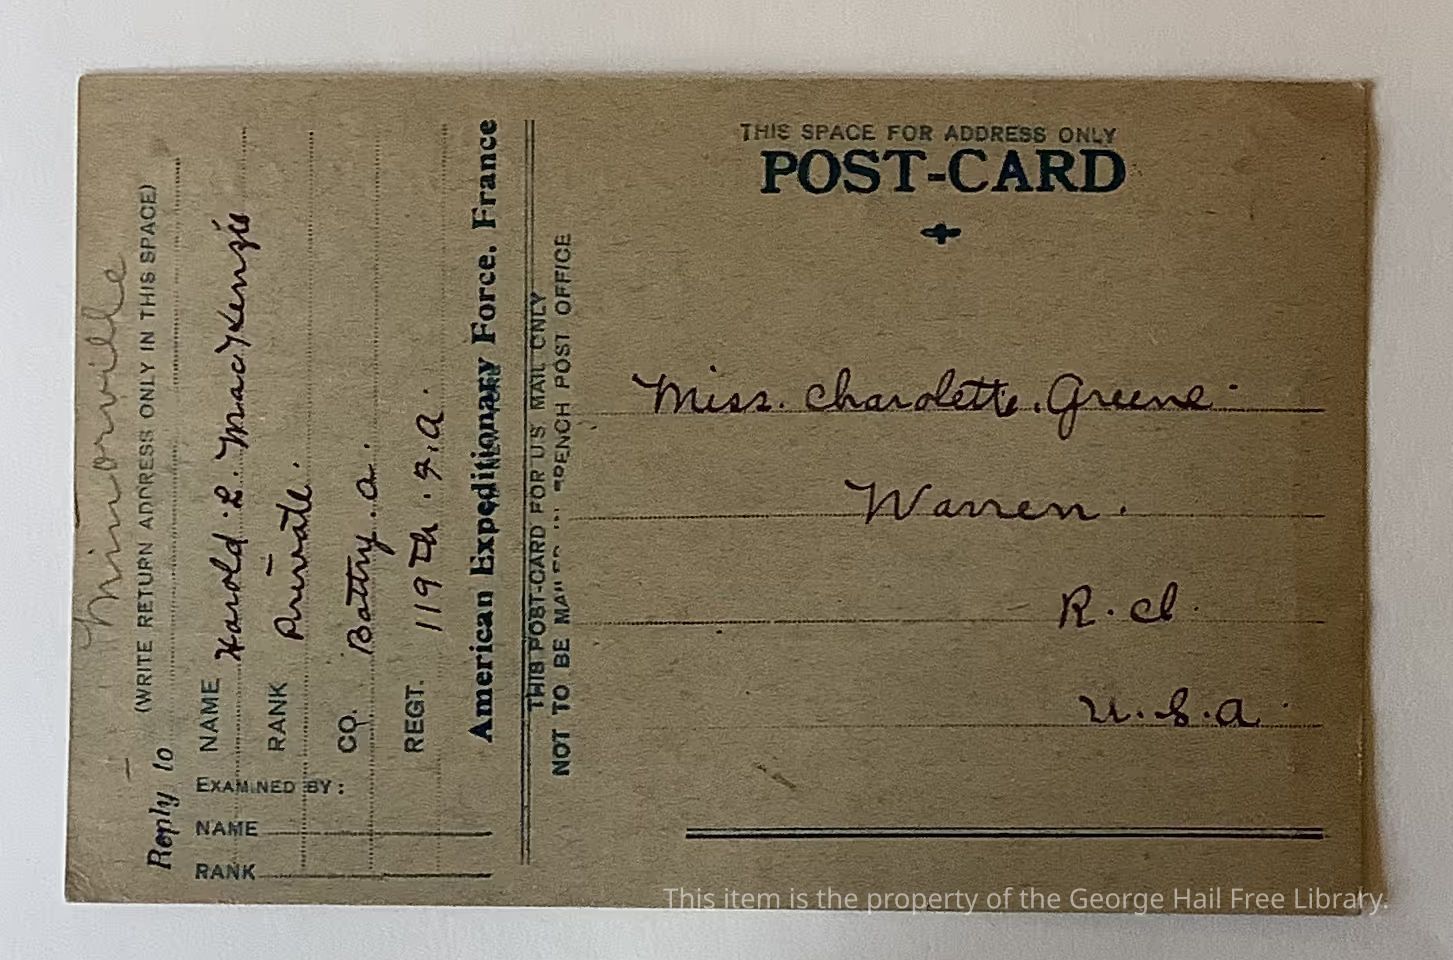 Minorville
(WRITE RETURN ADDRESS ONLY IN THIS SPACE)
Reply to
NAME Harold. L. MacKenzie
RANK Private.
CO. Battry. a.
REGT. 119th. F.A.
American Expeditionary Force, France
EXAMINED BY:
NAME
RANK
THIS POST-CARD FOR U S MAIL ONLY
NOT TO BE MAILED IN FRENCH POST OFFICE
THIS SPACE FOR ADDRESS ONLY
POST-CARD
Miss. Charolette. Greene.
Warren.
R. I.
U. S. A.
This item is the property of the George Hail Free Library.